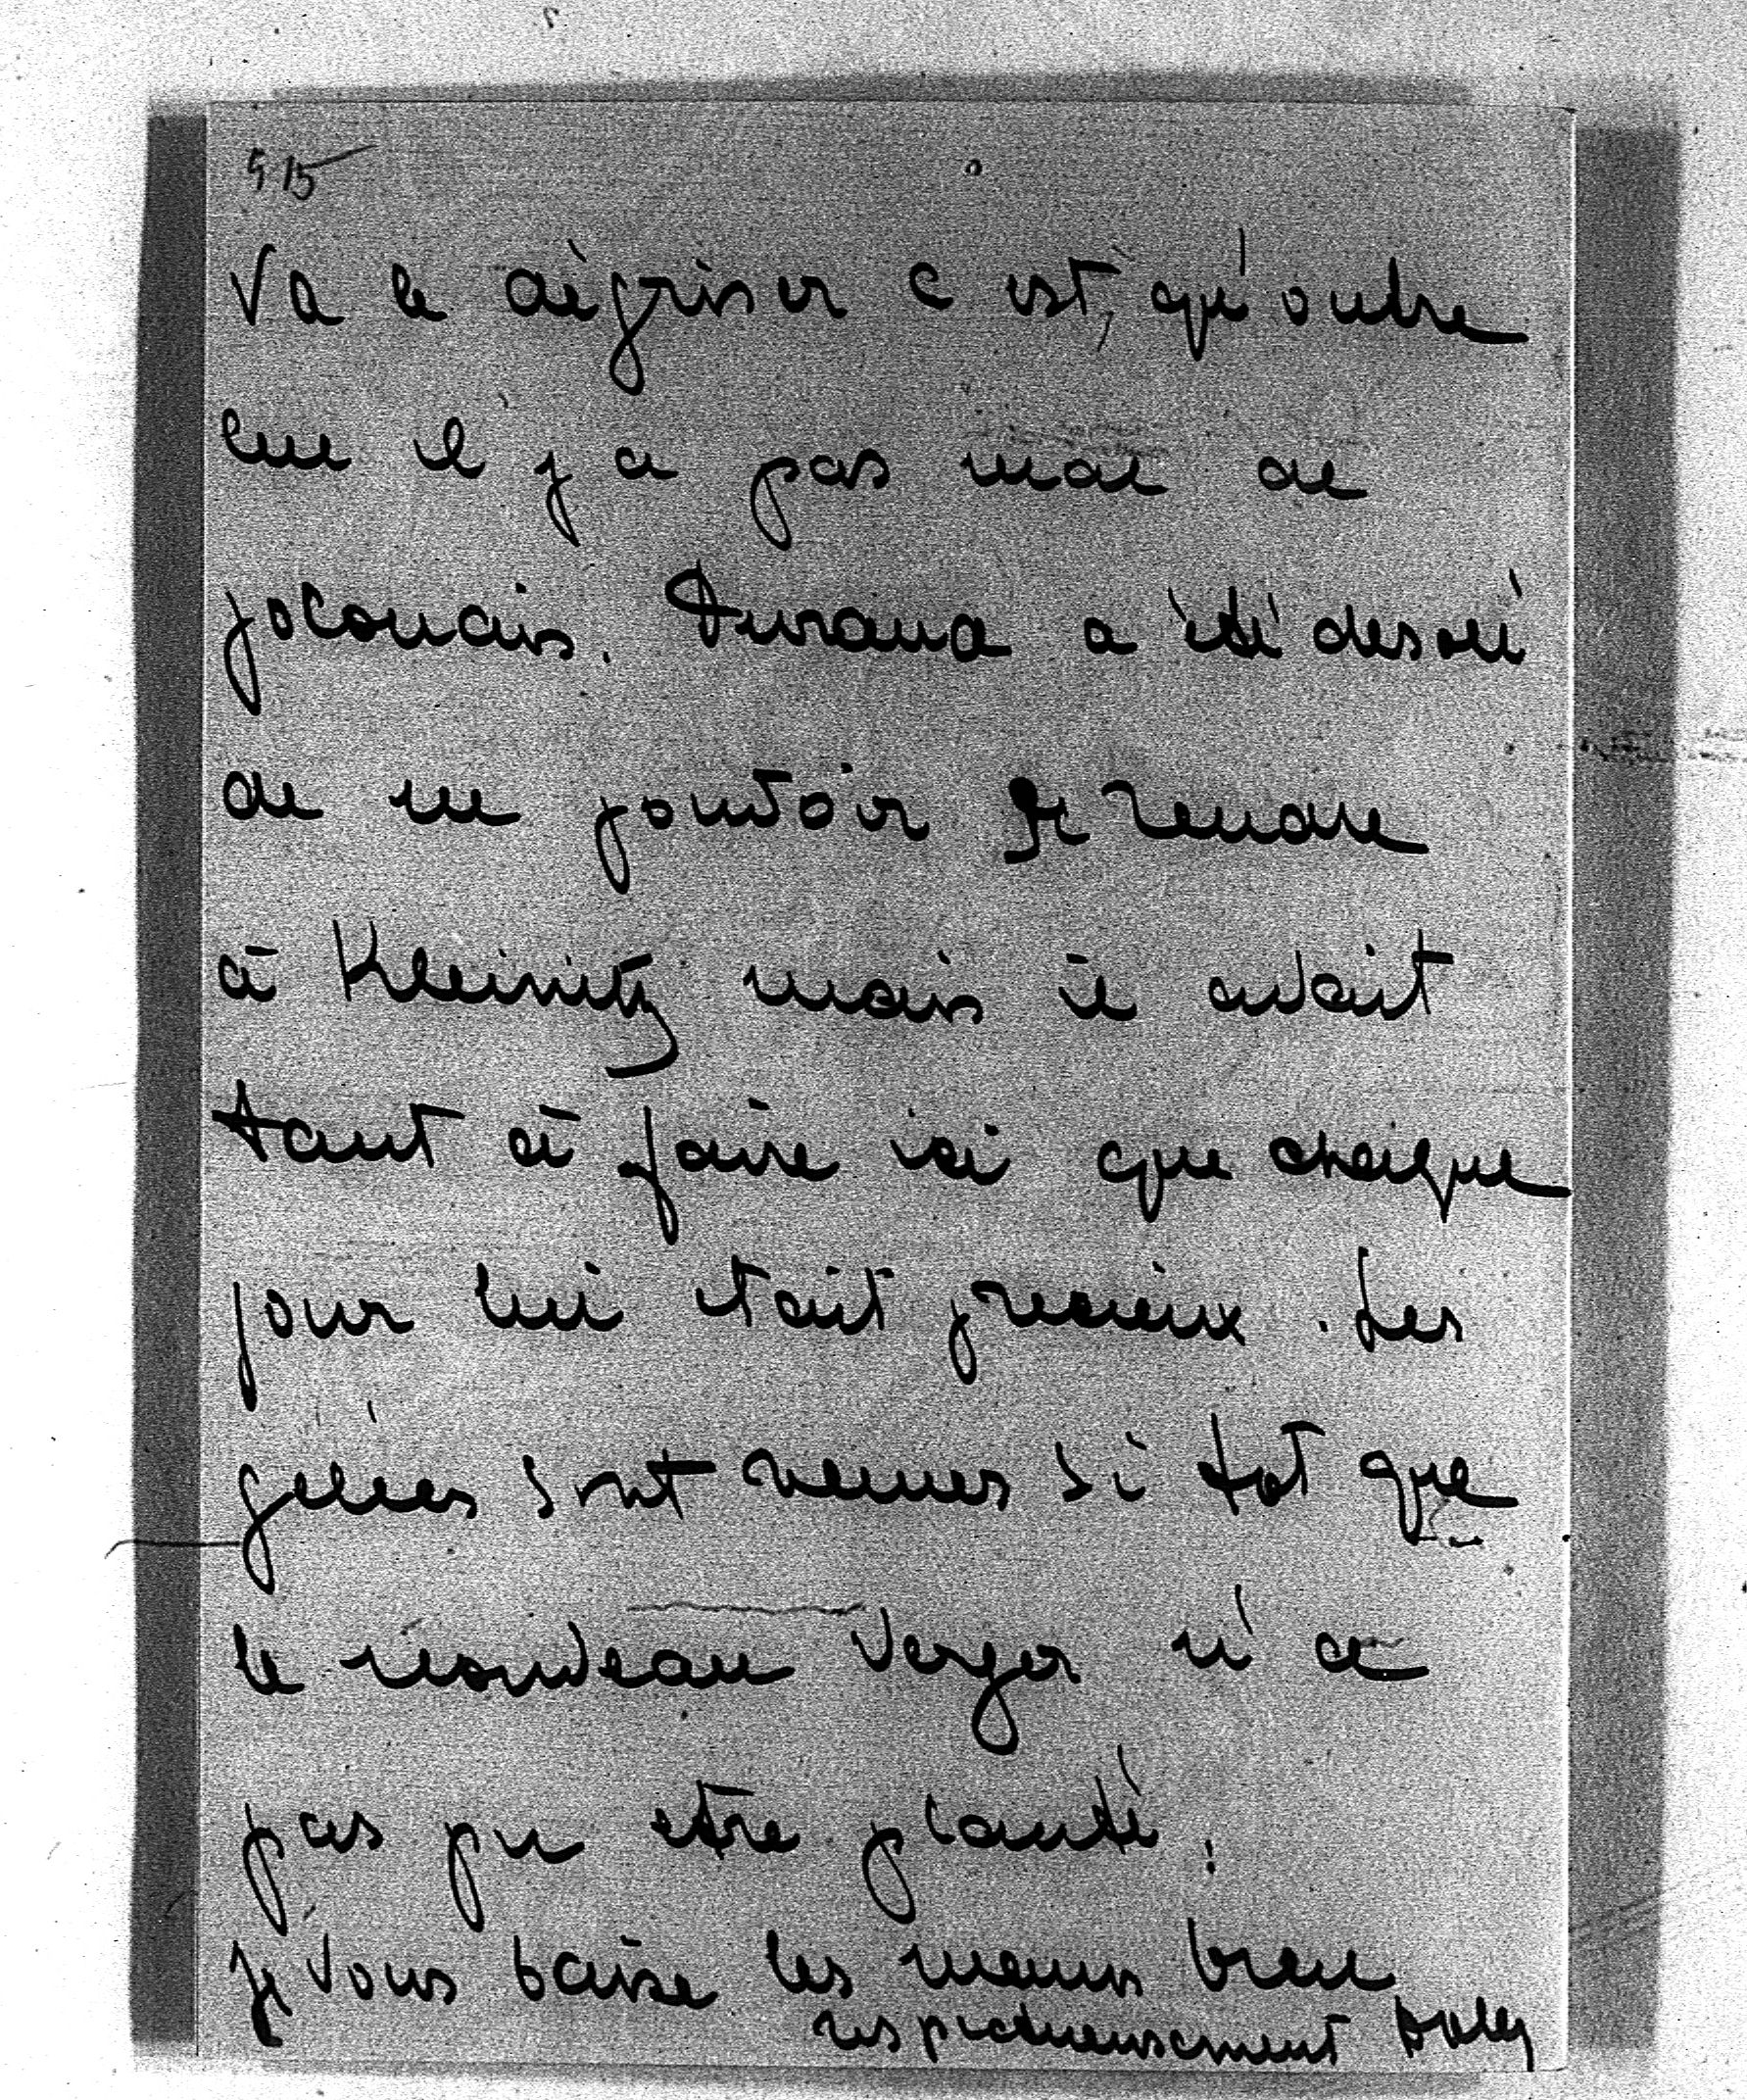 915
va le dégriser c est, qu'outre
lui il y a pas mal de
polonais. Durand a été desolé
de ne pouvoir se rendre
à Kleinitz mais il avait
tant à faire ici que chaque
jour lui était precieux. Les
gelées sont venues si tot que
le nouveau verger n'a
pas pu etre planté.
je vous baise les mains bien
respectueusement Dolly